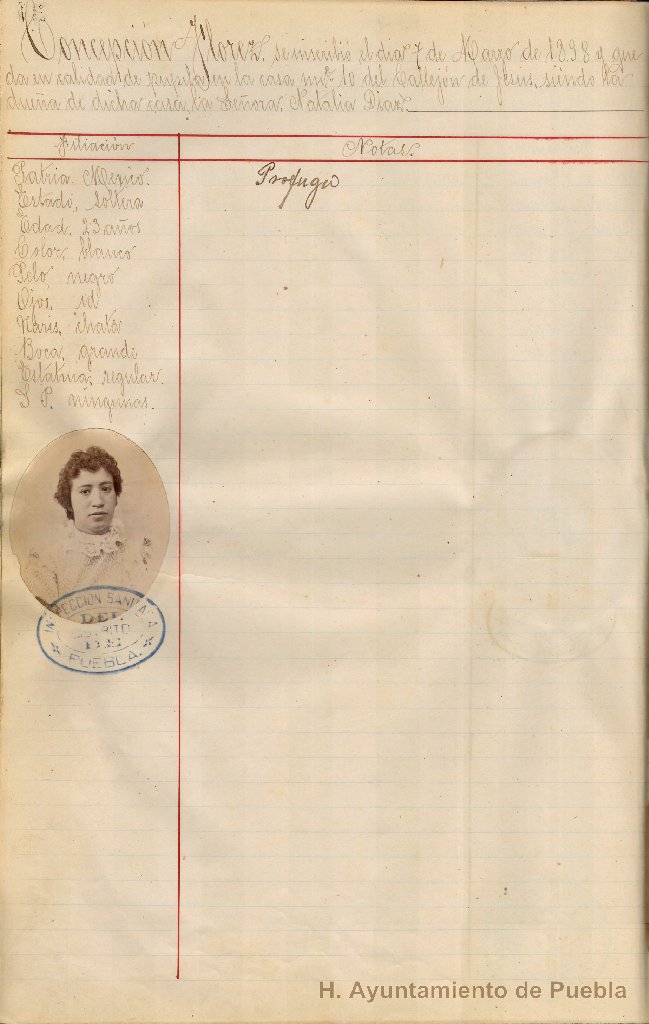 Concepción Florez, se inscribió el dia 7 de Marzo de 1898 y que
da en calidad de pupila, en la casa nu.º 10 del Callejon de Jesus, siendo la
dueña de dicha casa la Señora, Natalia Diaz.
Filiación
Notas.
Patria. Mexico.
Estado, Soltera
Edad. 23 años
Color, blanco
Pelo, negro
Ojos, id
Naris, chata
Boca, grande
Estatura, regular.
S. P. ningunas.
Profuga
INSPECCION SANITARIA
DEL
DISTRITO
DE
PUEBLA.
H. Ayuntamiento de Puebla